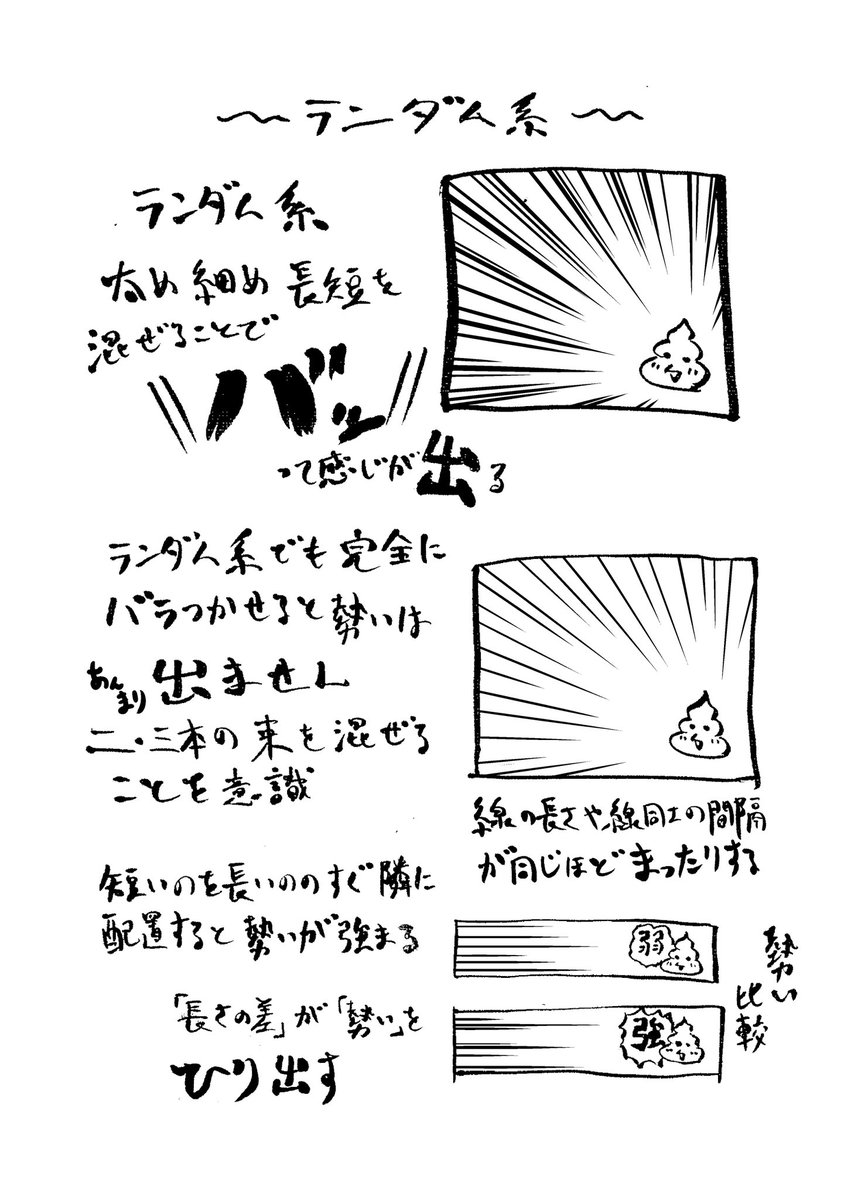 〜ランダム系〜
ランダム系
太め細め長短を
混ぜることで
バッ
って感じが出る
ランダム系でも完全に
バラつかせると勢いは
あんまり出ません
二・三本の束を混ぜる
ことを意識
線の長さや線同士の間隔
が同じほどまったりする
短いのを長いののすぐ隣に
配置すると勢いが強まる
「長さの差」が「勢い」を
ひり出す
弱
強
勢い
比較